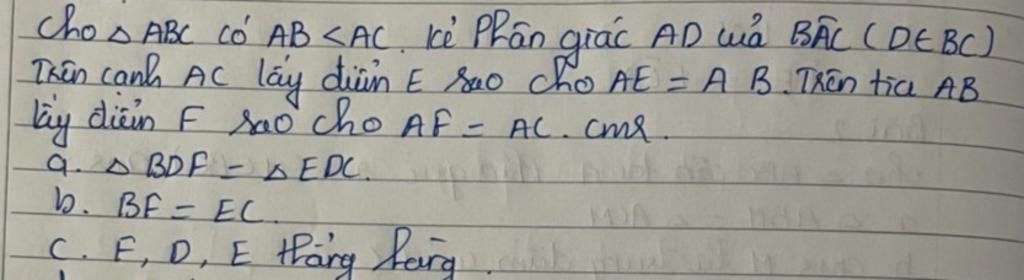 Cho △ ABC có AB < AC. Kẻ Phân giác AD của BÂC (D∈BC)
Trên cạnh AC lấy điểm E sao cho AE = A B. Trên tia AB
lấy điểm F sao cho AF = AC. cmr.
a. △ BDF = △ EDC.
b. BF = EC.
C. F, D, E thẳng hàng.